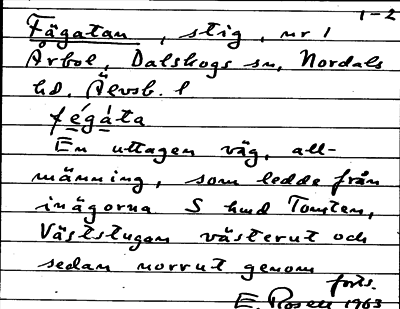 1-2
Fägatan, stig, nr 1
Årbol, Dalskogs sn, Nordals
hd. Älvsb. l
fégáta
En uttagen väg, all-
männing, som ledde från
inägorna S hmd Tomten,
Väststugan västerut och
sedan norrut genom
forts.
E. Rosell 1963